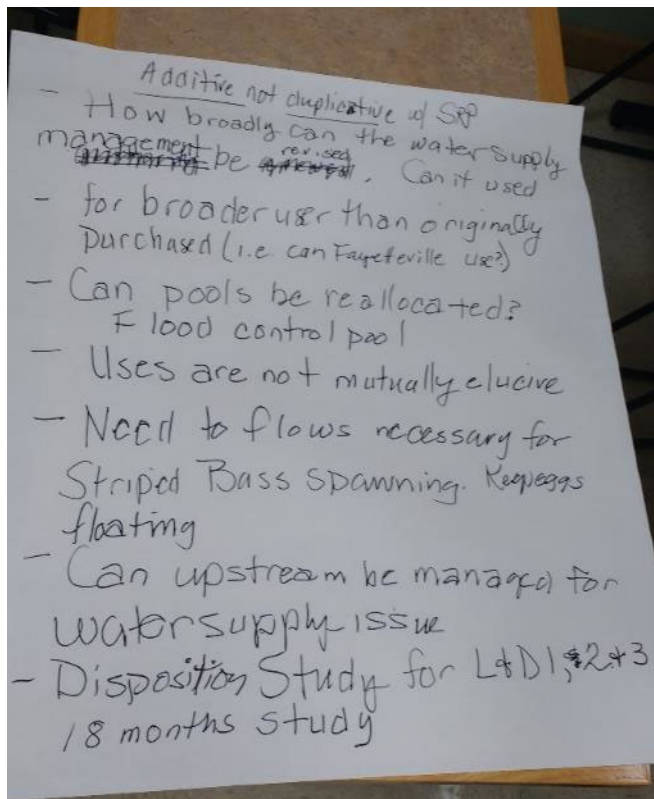 Additive not duplicative w/ SRP
- How broadly can the water supply
management be revised. Can it used
- for broader user than originally
purchased (i.e. can Fayetteville use?)
- Can pools be reallocated?
Flood control pool
- Uses are not mutually elucive
- Need to flows necessary for
Striped Bass spawning. Keep eggs
floating
- Can upstream be managed for
water supply issue
- Disposition Study for L&D 1, 2 + 3
18 months study